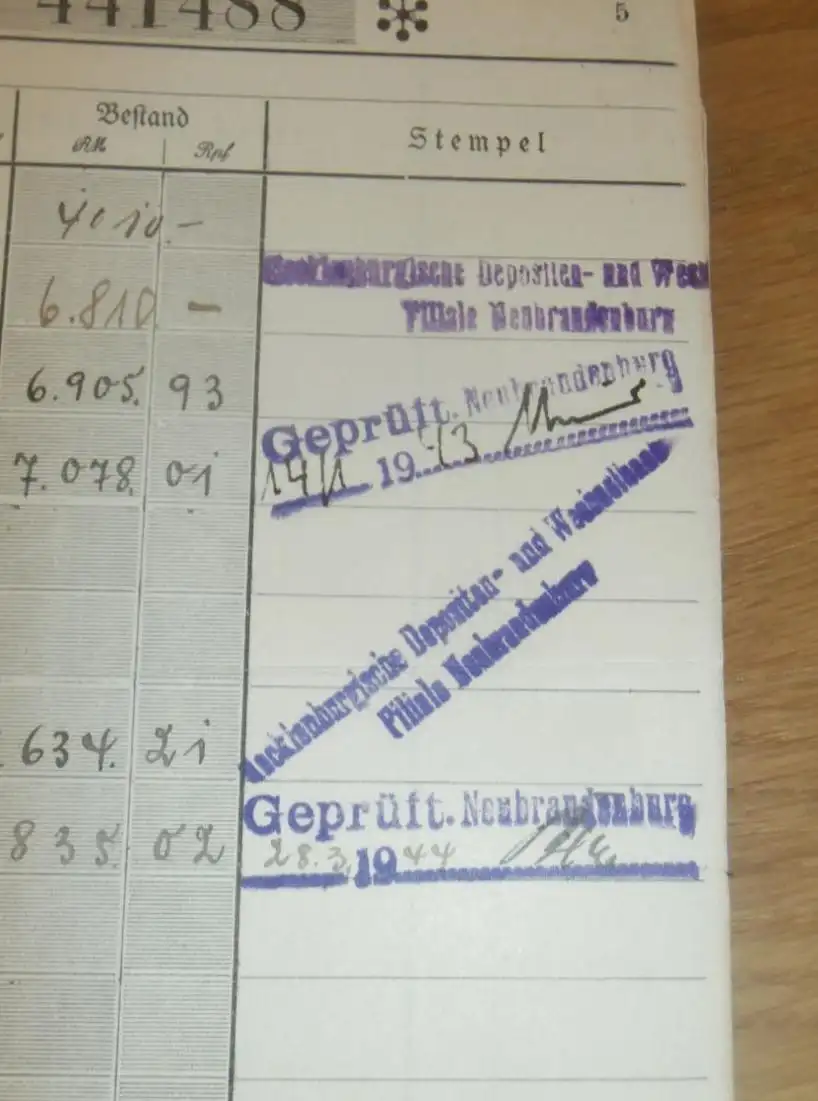 441488 5
Bestand Stempel
RM Rpf
4010.-
6.810 -
Mecklenburgische Depositen- und Wech
Filiale Neubrandenburg
6.905. 93
Geprüft. Neubrandenburg
7.078. 01
19/1 1943
Mecklenburgische Depositen- und Wechselbank
Filiale Neubrandenburg
634. 21
Geprüft. Neubrandenburg
835. 02
28.3. 1944